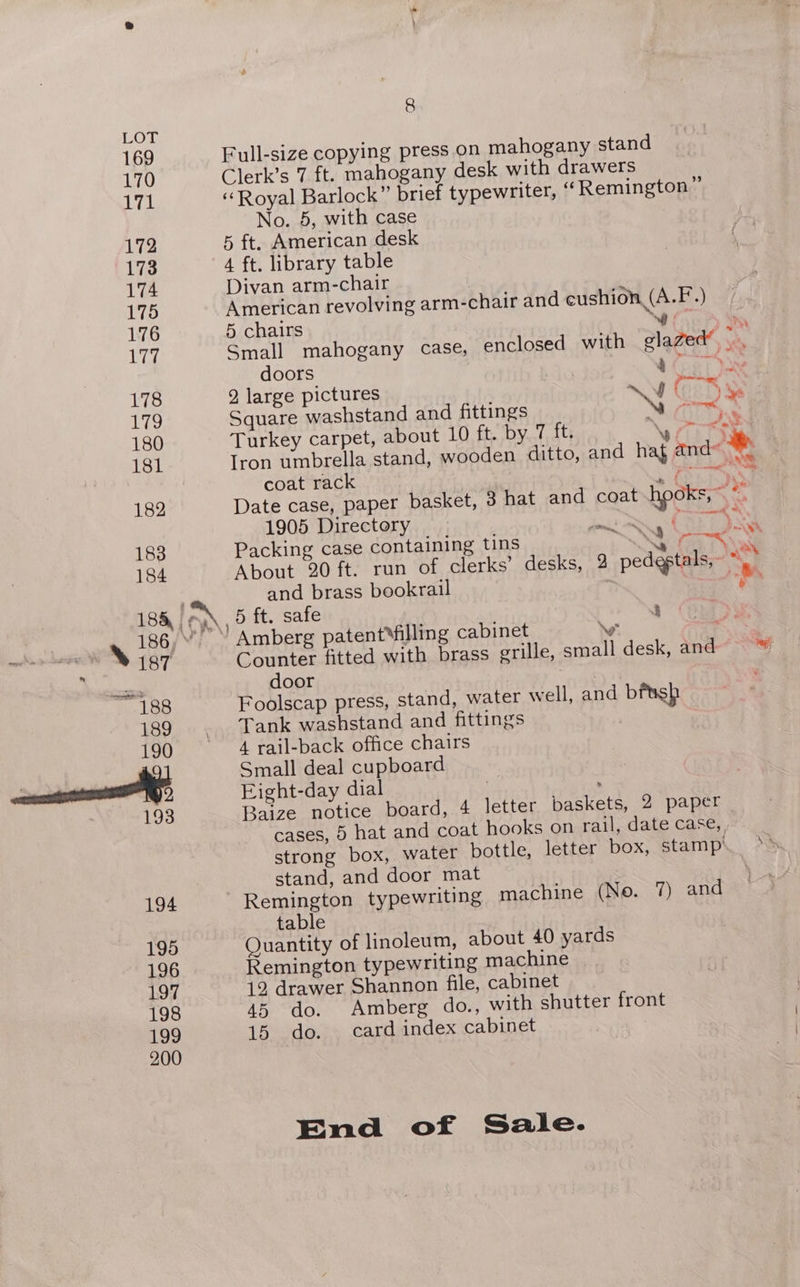 8
LOT
169 Full-size copying press on mahogany stand
170 Clerk's 7 ft. mahogany desk with drawers
171 “Royal Barlock” brief typewriter, “Remington”
No. 5, with case
172 5 ft. American desk
173 4 ft. library table
174 Divan arm-chair
175 American revolving arm-chair and cushion (A.F.)
176 5 chairs
177 Small mahogany case, enclosed with glazed
doors
178 2 large pictures
179 Square washstand and fittings
180 Turkey carpet, about 10 ft. by 7 ft.
181 Iron umbrella stand, wooden ditto, and hat and
coat rack
182 Date case, paper basket, 3 hat and coat hooks,
1905 Directory
183 Packing case containing tins
184 About 20 ft. run of clerks' desks, 2 pedestals,
and brass bookrail
185 5 ft. safe
186 Amberg patent filling cabinet
187 Counter fitted with brass grille, small desk, and
door
188 Foolscap press, stand, water well, and brush
189 Tank washstand and fittings
190 4 rail-back office chairs
191 Small deal cupboard
192 Eight-day dial
193 Baize notice board, 4 letter baskets, 2 paper
cases, 5 hat and coat hooks on rail, date case,
strong box, water bottle, letter box, stamp
stand, and door mat
194 Remington typewriting machine (No. 7) and
table
195 Quantity of linoleum, about 40 yards
196 Remington typewriting machine
197 12 drawer Shannon file, cabinet
198 45 do. Amberg do., with shutter front
199 15 do. card index cabinet
200
End of Sale.